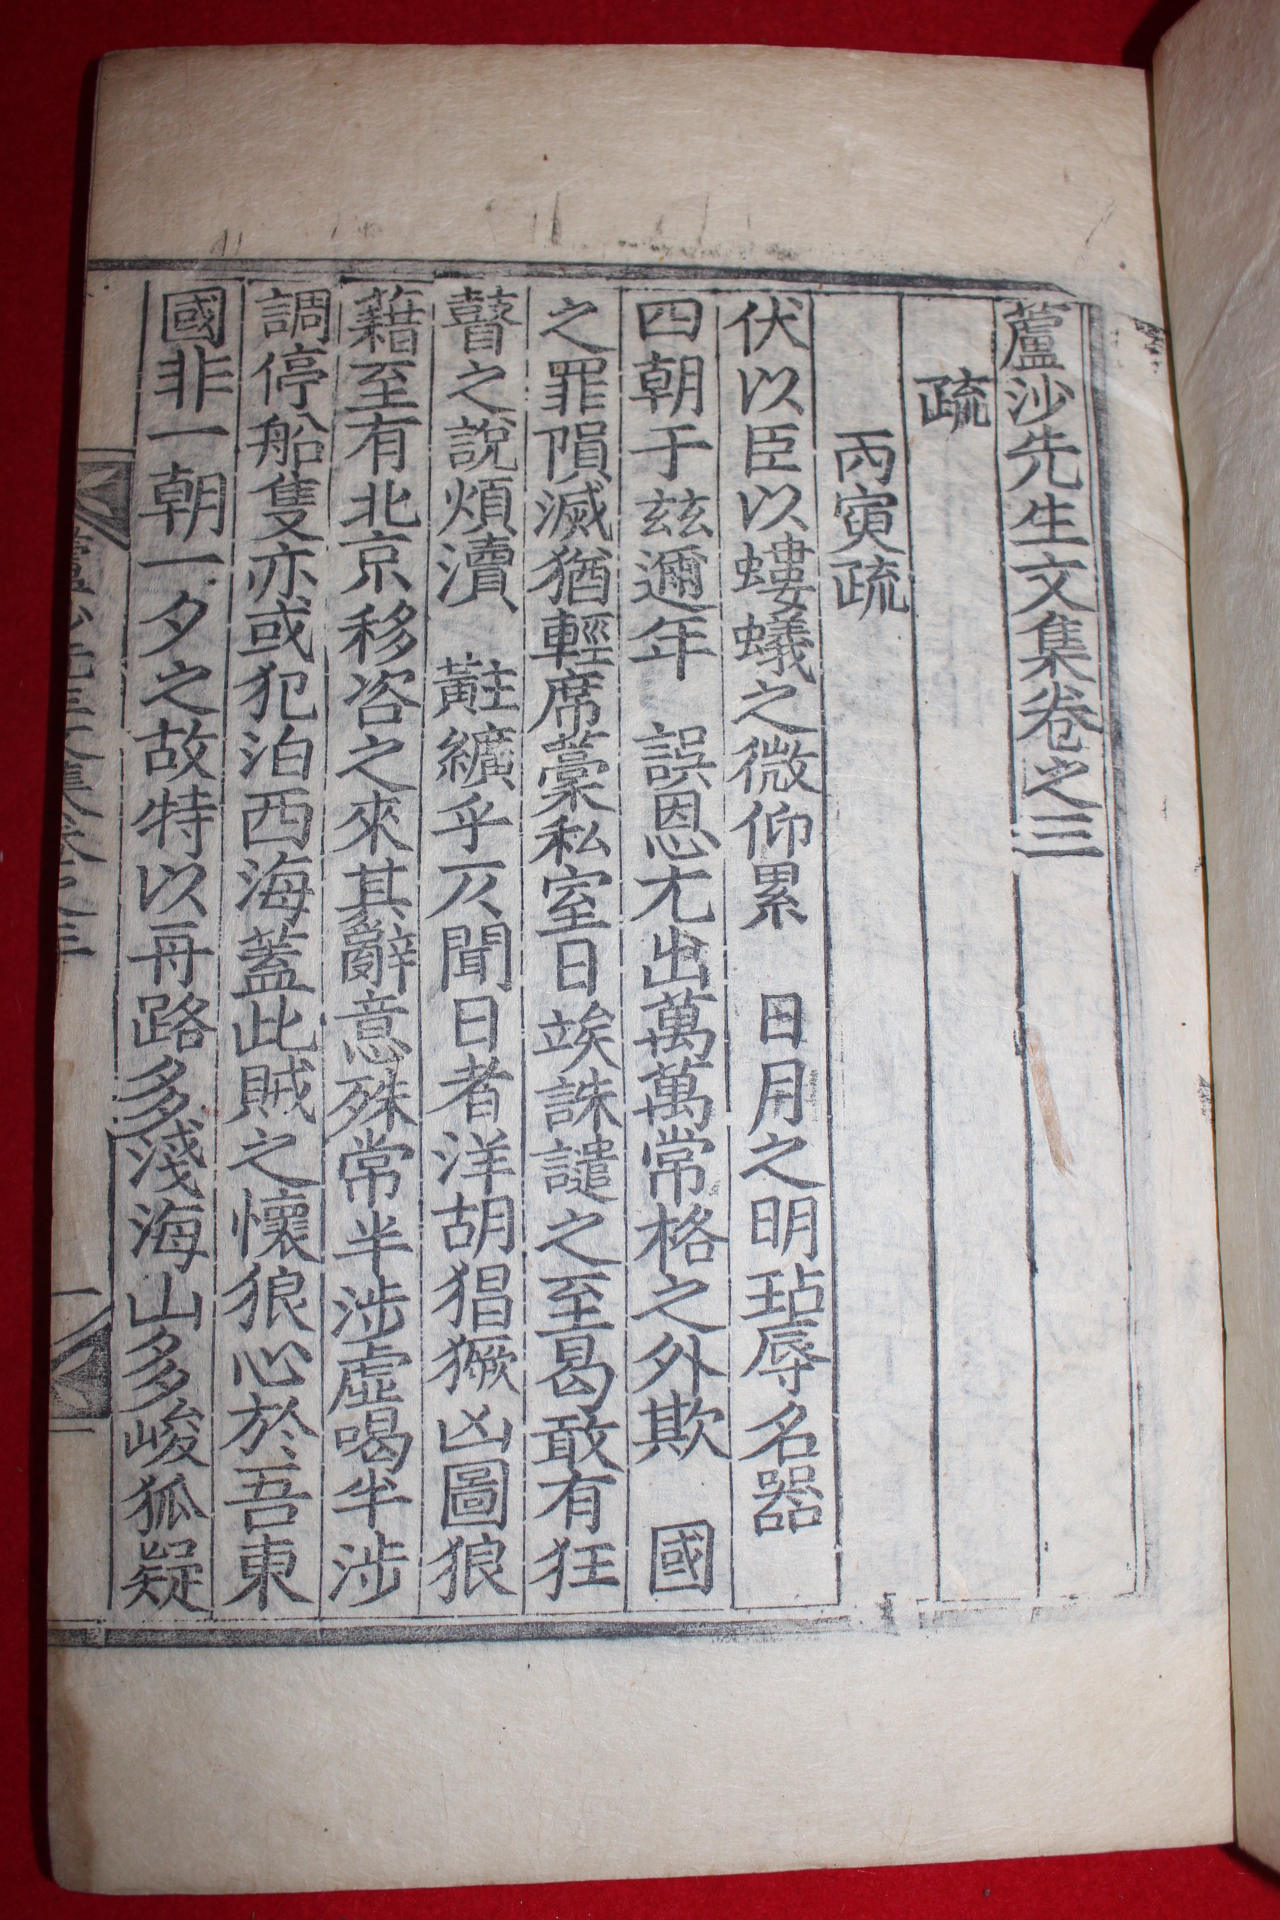 蘆沙先生文集卷之三
疏
丙寅疏
伏以臣以螻蟻之微仰累 日月之明玷辱名器
四朝于玆邇年 誤恩尤出萬萬常格之外欺 國
之罪隕滅猶輕席藁私室日竢誅譴之至曷敢有狂
瞽之說煩瀆 黈纊乎仄聞日者洋胡猖獗凶圖狼
藉至有北京移咨之來其辭意殊常半涉虛喝半涉
調停船隻亦或犯泊西海蓋此賊之懷狼心於吾東
國非一朝一夕之故特以再路多淺海山多峻狐疑